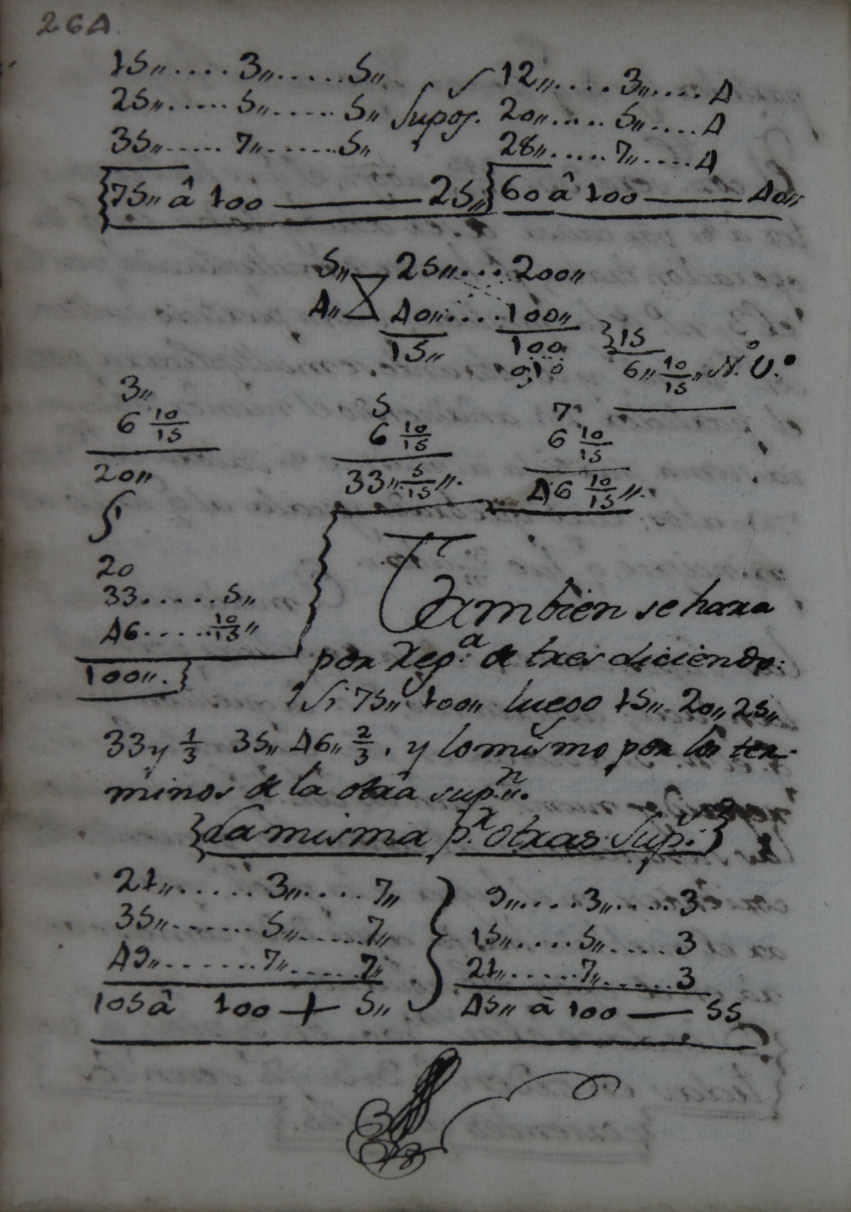 264
15,,....3,,.....5,,
25,,.....5,,.....5,,
35,,.....7,,.....5,,
75,, â 100 — 25,,
Supos.
12,,....3,,....4
20,,....5,,....4
28,,....7,,....4
60 â 100 — 40,,
5,, 25,,...200,,
4,, 40,,....100,,
15,, 100
010
15
6,, 10/15,, N.º V.º
3,,
6 10/15
20,,
5
6 10/15
33,, 5/15,,
7
6 10/15
46 10/15,,
20
33.....5,,
46.....10/15,,
100,,.
Tambien se hara
por Reg.a de tres diciendo:
Si 75,, 100,, luego 15,, 20,, 25,,
33 y 1/3 35,, 46,, 2/3, y lo mismo por los ter-
minos de la otra sup.n
La misma p.r otras Sup.s
21,,.....3,,....7,,
35,,.....5,,....7,,
49,,......7,,.....7,,
105 â 100 + 5,,
9,,....3,,....3
15,,....5,,....3
21,,.....7,,.....3
45,, â 100 — 55